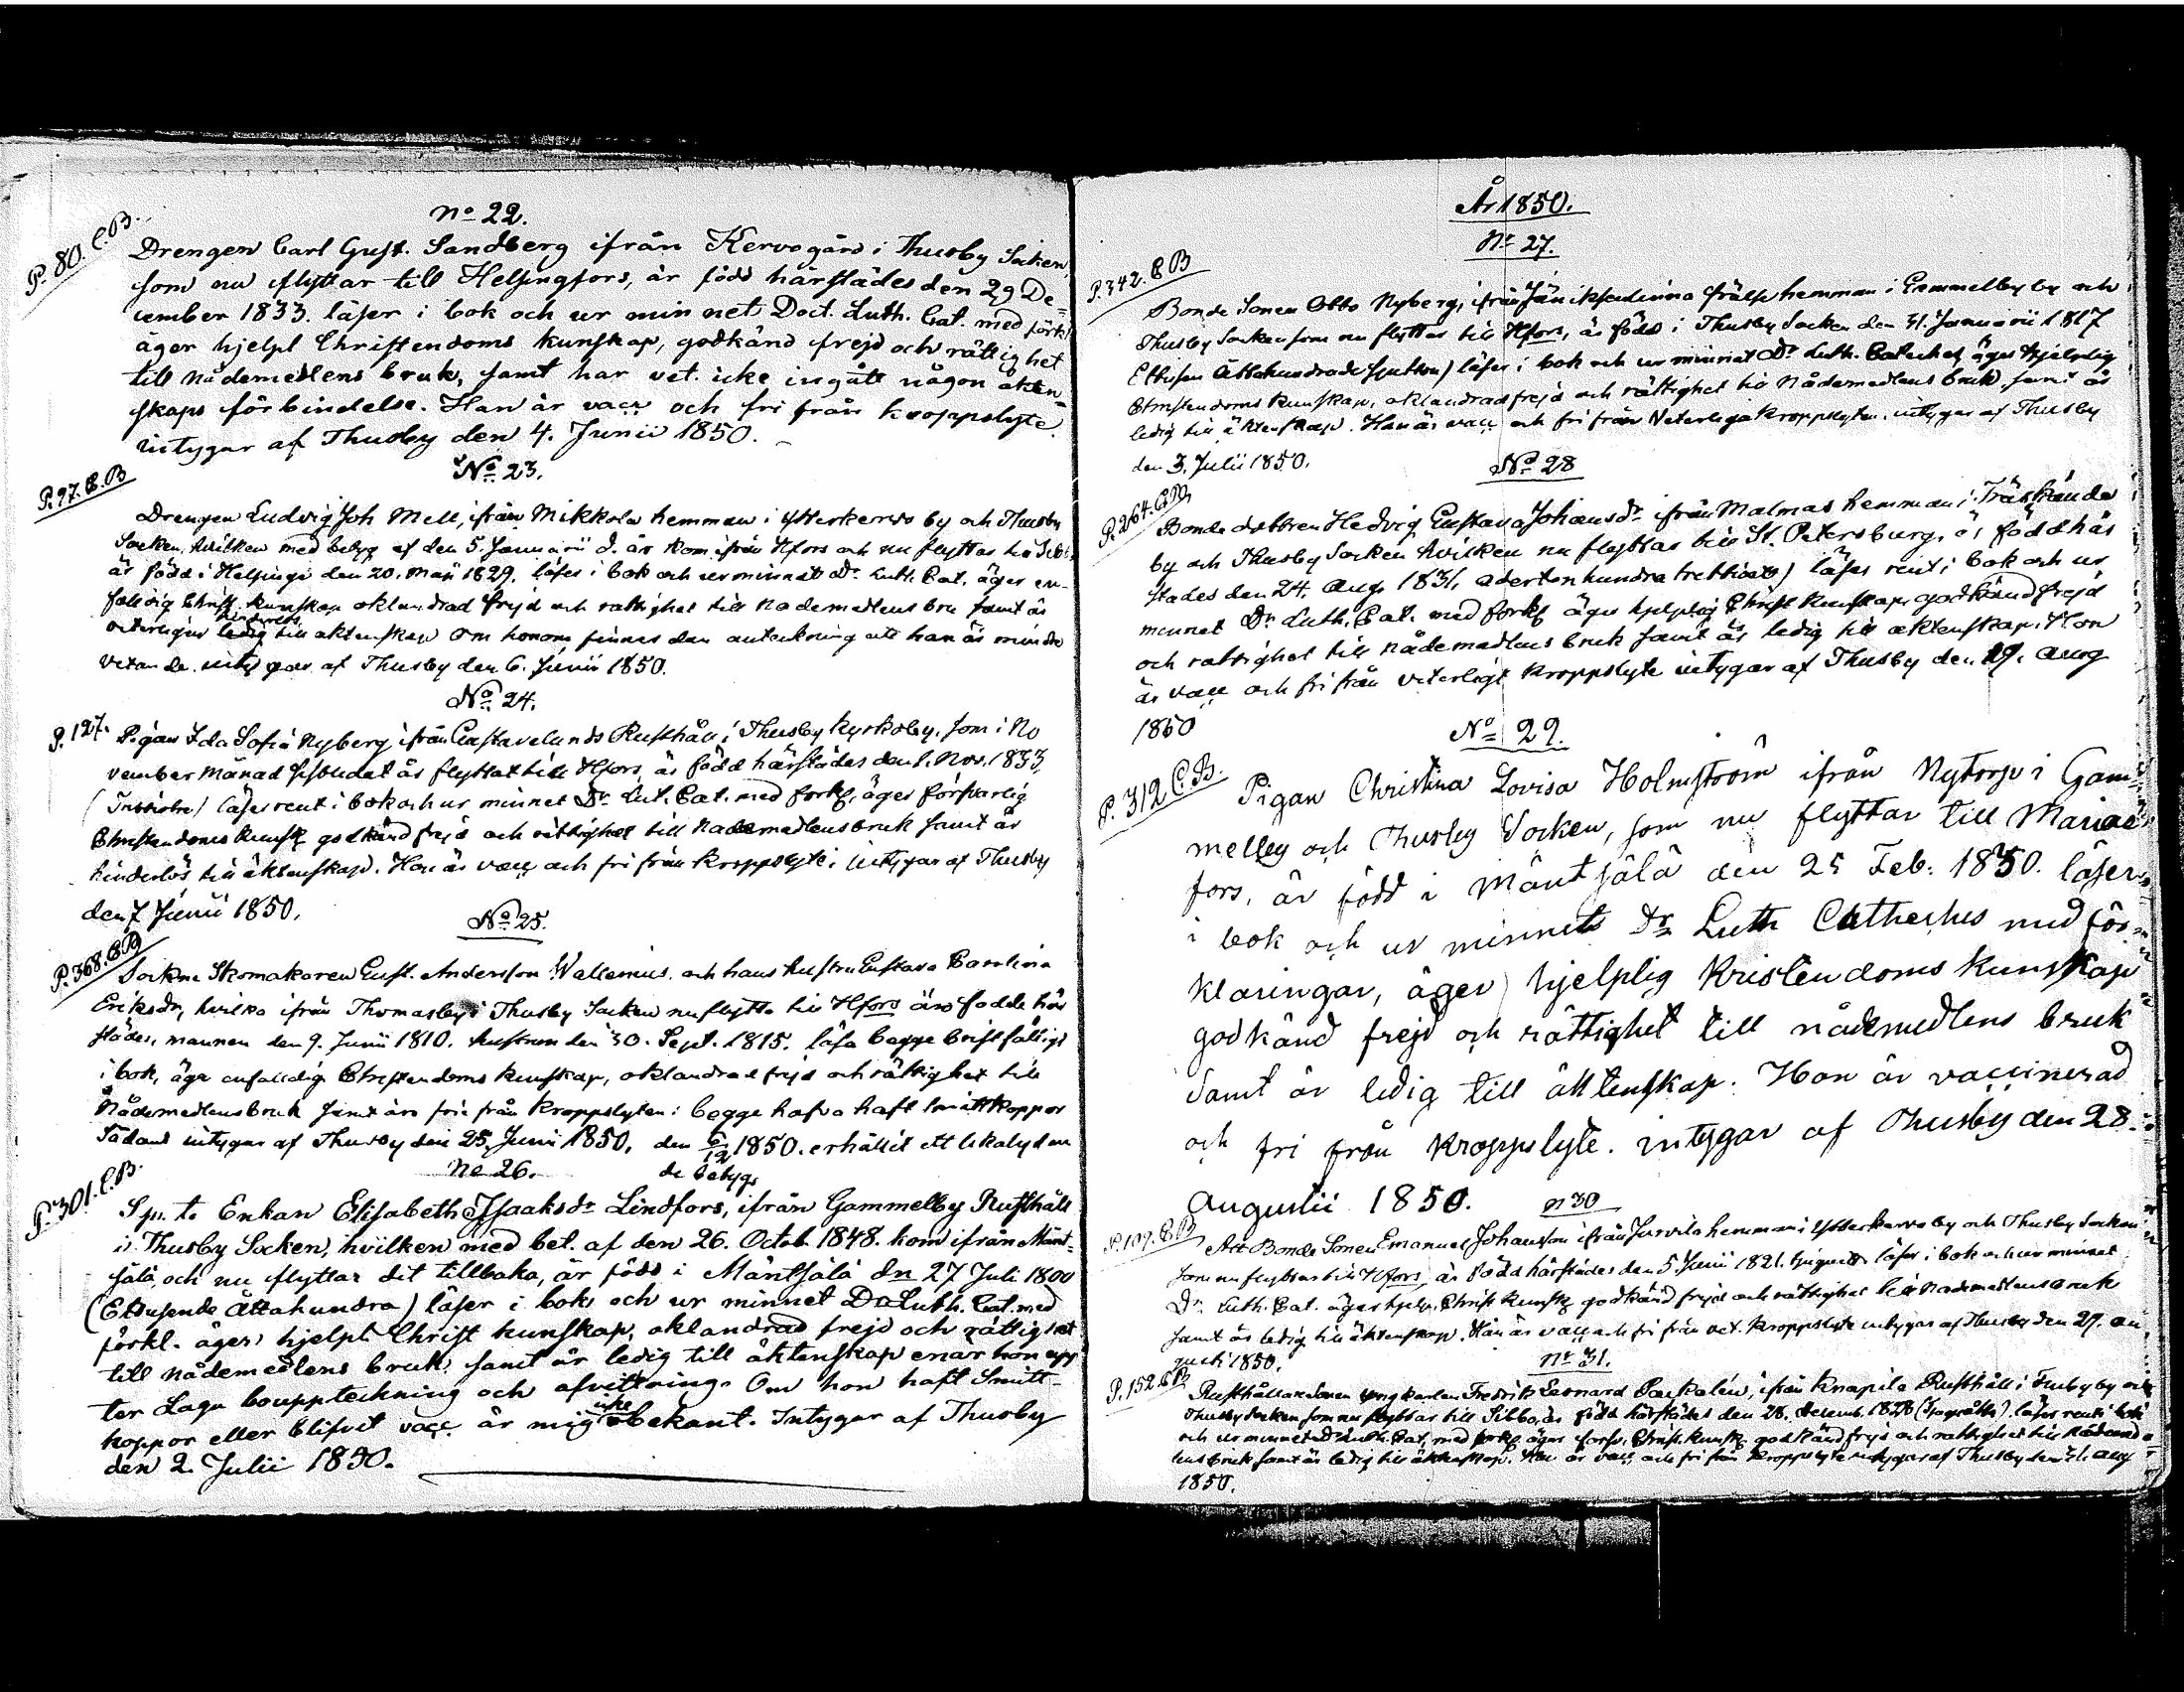 P. 80. C.B.
No 22.
Drengen Carl Gust. Sandberg ifrån Kervo gård i Thusby Socken,
som nu flyttar till Helsingfors, är född härstädes den 29 De=
cember 1833. läser i bok och ur minnet Doct. Luth. Cat. med förkl
äger hjelpl Christendoms kunskap, godkänd frejd och rättighet
till nådemedlens bruk, samt har vet. icke ingått någon äkten=
skaps förbindelse. Han är vacc och fri från kroppslyte
intygar af Thusby den 4. Junii 1850.
No 23.
P. 97. C.B
Drengen Ludvig Joh Mell, ifrån Mikkola hemman i Ytterkervo by och Thusby
Socken, hvilken med betyg af den 5. Januarii d. år kom ifrån Hfors och nu flyttar till
är född i Helsinge den 20. Maji 1829. läser i bok och ur minnet Dr. Luth. Cat. äger en-
faldig Christ. kunskap oklandrad frejd och rättighet till nademedlens bru samt är
veterligen hinderlös ledig till äktenskap Om honom finnes den anteckning att han är mindre
vetande. intygar af Thusby den 6. Junii 1850.
No 24.
P. 127.
Pigan Ida Sofia Nyberg ifrån Gustavelunds Rusthåll i Thusby Kyrkoby, som i No
vember Månad sistledet år flyttat till Hfors, är född härstädes den 1. Nov. 1833,
läser rent i bok och ur minnet Dr. Lut. Cat. med förkl, äger försvarlig
Christendoms kunsk godkänd frejd och rättighet till Nademedlens bruk samt är
hinderlös till äktenskap. Hon är vacc och fri från kroppslyte, intygar af Thusby
den 7 Junii 1850.
No 25.
P. 368. C.B
Sockne Skomakaren Gust. Andersson Wallenius, och hans hustru Gustava Carolina
Eriksdr, hvilka ifrån Thomasby i Thusby Socken nu flytta till Hfors äro födde här
städes, mannen den 9. Junii 1810. hustrun den 30. Sept. 1815. läsa begge bristfälligt
i bok, äga enfaldig Christendoms kunskap, oklandrad frejd och rättighet till
Nådemedlens bruk samt äro fria från kroppslyten: begge hafva haft Smittkoppor
Sådant intygar af Thusby den 25. Junii 1850. den 6/12 1850. erhållit ett likalydan
de betyg.
No 26.
P. 301. C.B.
Enkan Elisabeth Isaaksdr Lindfors, ifrån Gammelby Rusthåll
i Thusby Socken, hvilken med bet. af den 26. Octob. 1848. kom ifrån Mänt=
sälä och nu flyttar dit tillbaka, är född i Mäntsälä dn 27 Juli 1800
(Ettusende Åttahundra) läser i bok och ur minnet Dr Luth. Cat. med
förkl. äger hjelpl. Christ kunskap, oklandrad frejd och rättighet
till nådemedlens bruk, samt är ledig till äktenskap enär hon upp
ter Laga bouppteckning och afvittring. Om hon haft Smitt-
koppor eller blifvit vacc är mig icke bekant. Intygar af Thusby
den 2. Julii 1850.
År 1850.
No 27.
P. 342. C.B
Bonde Sonen Otto Nyberg, ifrån frälse hemman i Gammelby by och
Thusby Socken som nu flyttar till Hfors, är född i Thusby Socken den 31. Januarii 1817
Ettusen Åttahundrade sjutton) läser i bok och ur minnet Dr Luth. Cateches äger hjelplig
Christendoms kunskap, oklandrad frejd och rättighet till Nådemedlens bruk, samt är
ledig till äktenskap. Han är vacc och fri från Veterliga kroppslyten. intygar af Thusby
den 3. Julii 1850.
No 28
P. 264. C.B.
Bonde dottren Hedvig Gustava Johansdr ifrån Malmas hemman i Träskända
by och Thusby Socken hvilken nu flyttar till St. Petersburg, är född här
städes den 24. Aug. 1831, adertonhundra trettioett) läser rent i bok och ur
minnet Dr Luth. Cat. med förkl äger hjelplig Christ kunskap, godkänd frejd
och rättighet till nådemedlens bruk samt är ledig till äktenskap. Hon
är vacc och fri från veterligt kroppslyte intygar af Thusby den 19. Aug
1850
No 29.
P. 312 C.B.
Pigan Christina Lovisa Holmström ifrån Nytorp i Gam
melby och Thusby Socken, som nu flyttar till Marie
fors, är född i Mäntsälä den 25 Feb. 1830. läser
i bok och ur minnet Dr Luth Cathechis med för
klaringar, äger hjelplig Kristendoms kunskap
godkänd frejd och rättighet till nådemedlens bruk
Samt är ledig till äktenskap. Hon är vaccinerad
och fri från kroppslyte. intygar af Thusby den 28.
Augustii 1850.
n 30
P. 109. C.B
Att Bonde Sonen Emanuel Johansson ifrån Jurvila hemman i Ytterkervo by och Thusby Socken
som nu flyttar till Hfors, är född härstädes den 5. Junii 1821. läser i bok och ur minnet
Dr. Luth. Cat. äger hjelp. Christ kunsk godkänd frejd och rättighet till Nademedlens bruk
samt är ledig till äktenskap. Han är vacc och fri från vet. kroppslyte intygar af Thusby den 29. Au
gusti 1850.
No 31.
P. 152 C.B
Rusthållare Sonen ungkarlen Fredrik Leonard ifrån Knapila Rusthåll i Thusby by och
Thusby Socken som nu flyttar till Sibbo, är född härstädes den 28. Decemb. 1828 läser rent i bok
och ur minnet Dr Luth. Cat. med förkl äger försv. Christ. kunsk godkänd frejd och rättighet till Nådemed
lens bruk samt är ledig till äktenskap. Han är vacc och fri från kroppslyte intygar af Thusby den 31. Aug
1850.